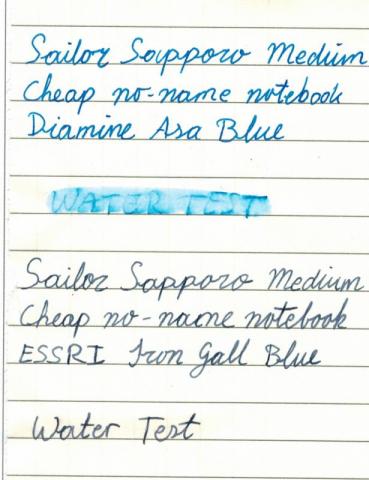 Sailor Sapporo Medium
Cheap no-name notebook
Diamine Asa Blue
WATER TEST
Sailor Sapporo Medium
Cheap no-name notebook
ESSRI Iron Gall Blue
Water Test